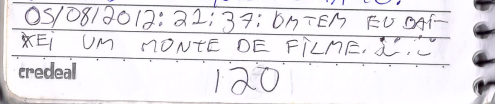 05/08/2012: 21: 37: ONTEM EU BAI-
XEI UM MONTE DE FILME.
credeal
120